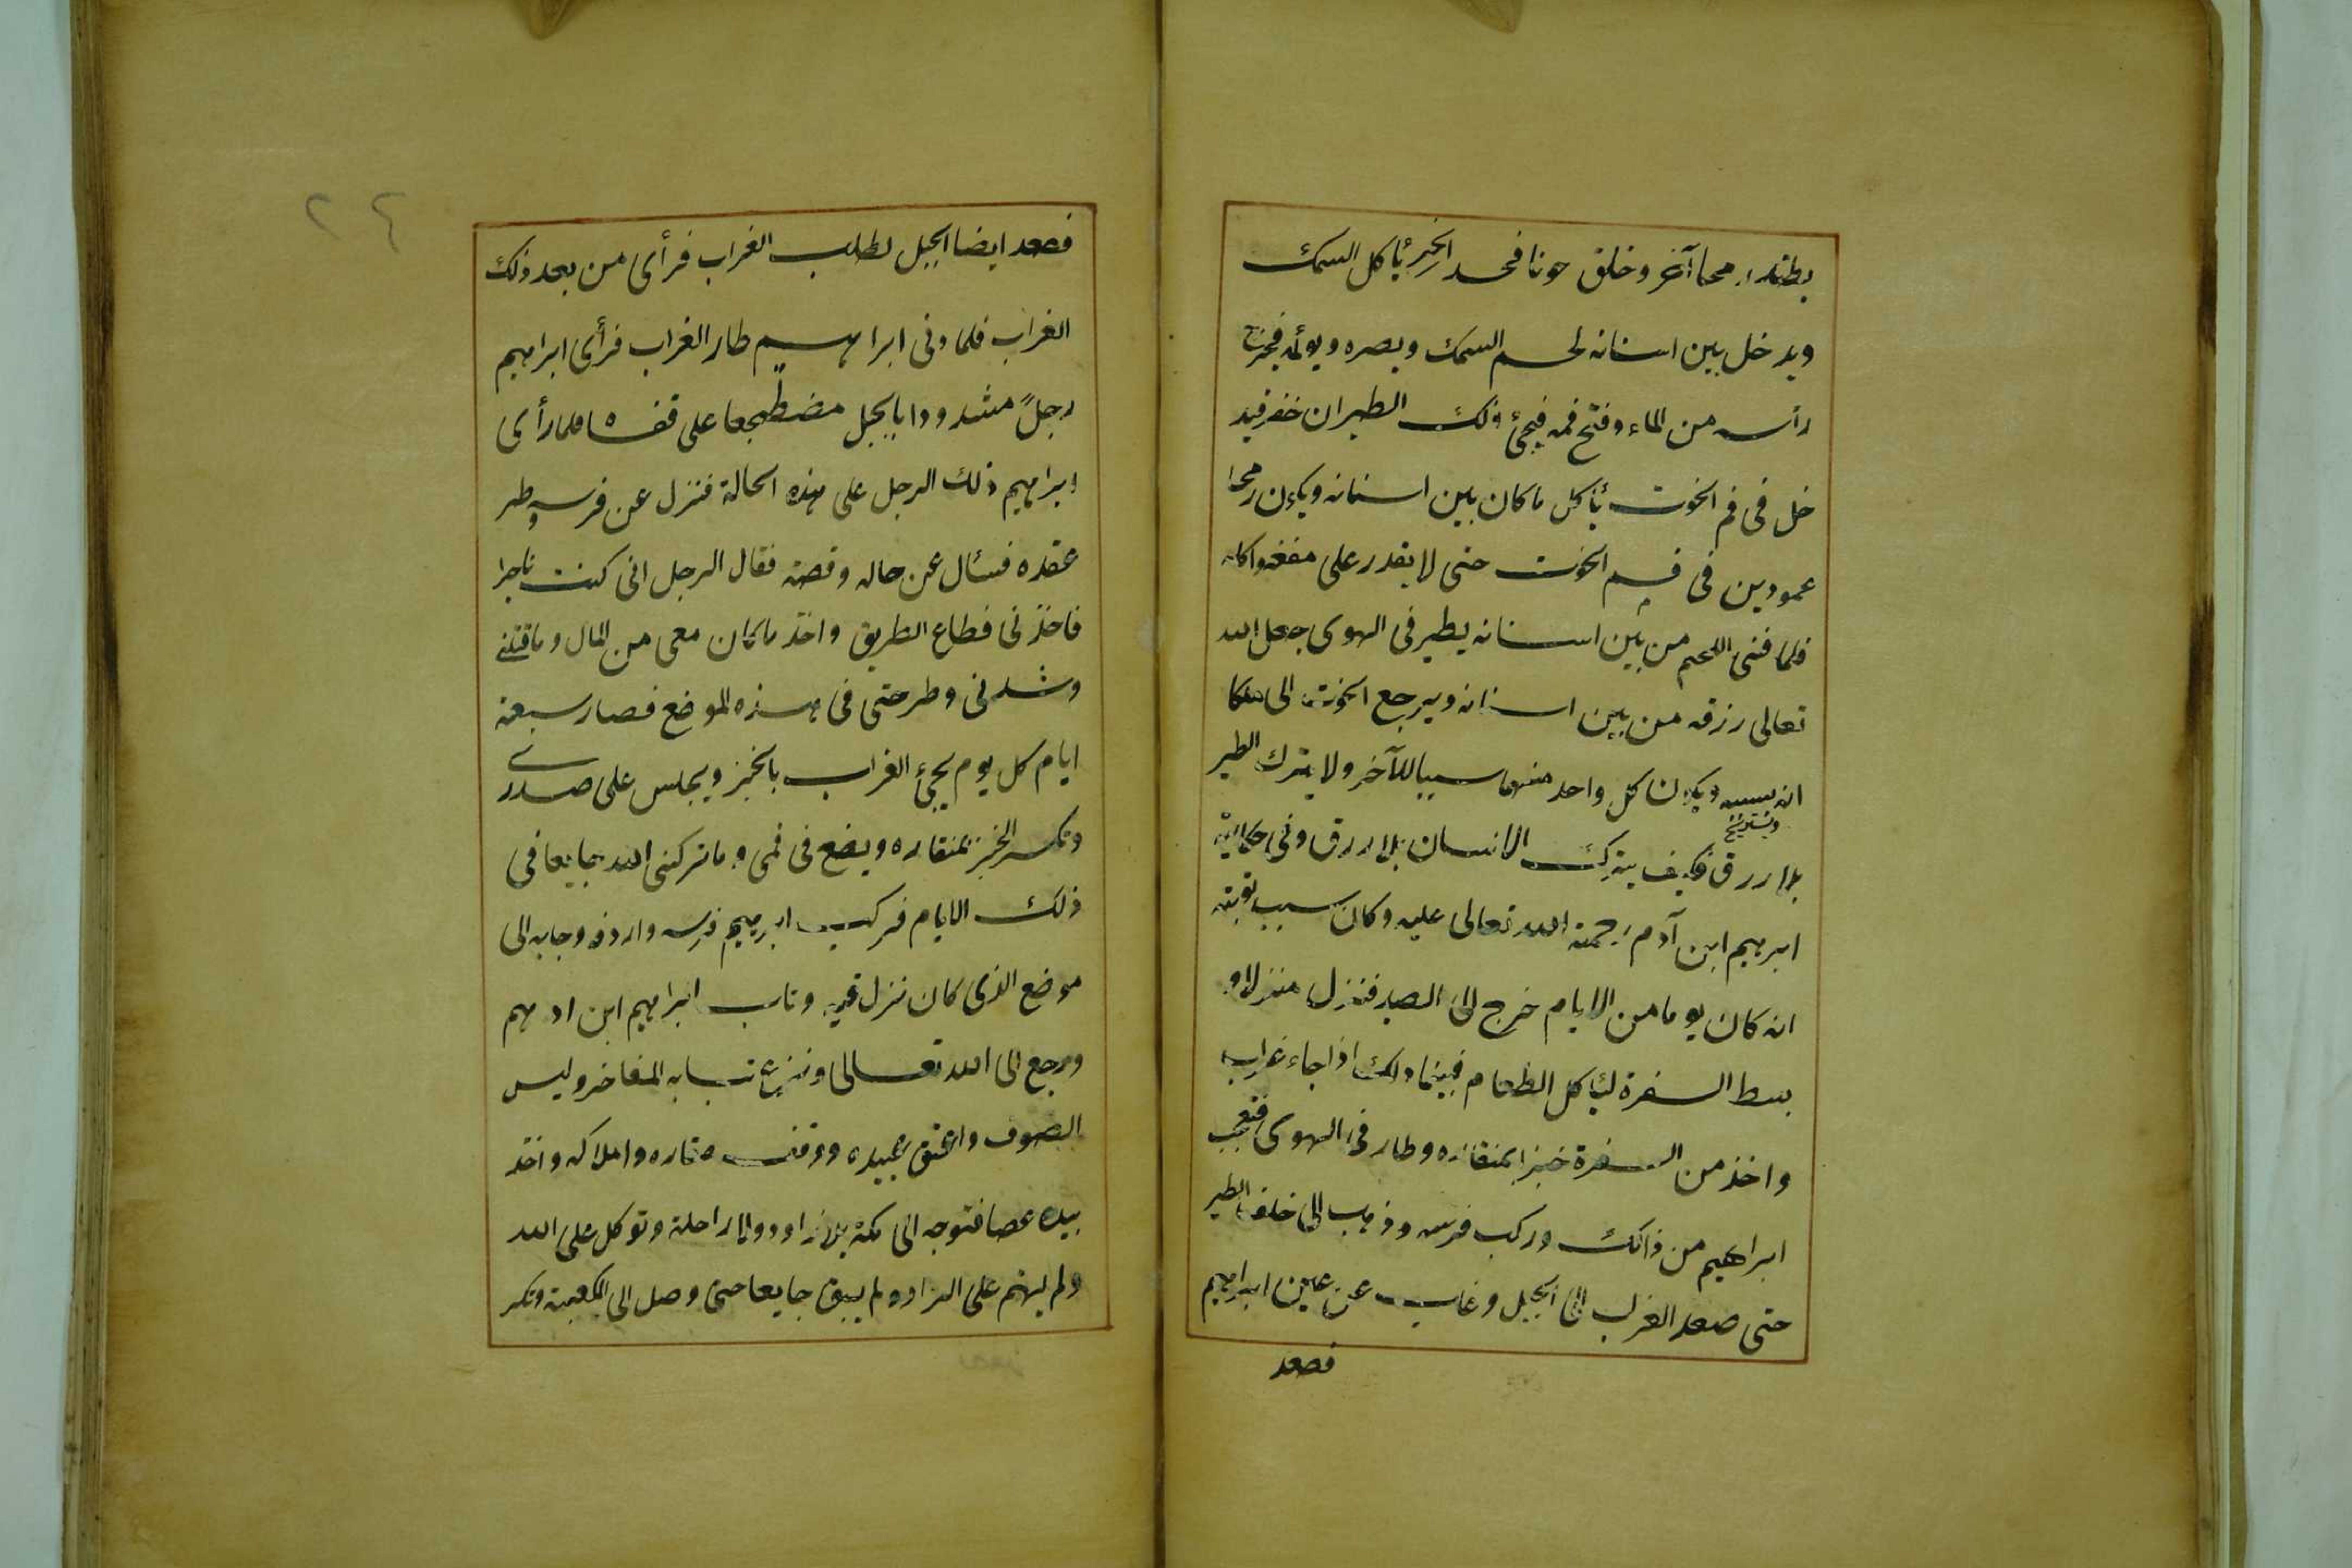 رمحا آخر وخلق حوتا فى البحر يأكل السمك
ويدخل بين اسنانه لحم السمك ويضره ويولمه فيخرج
رأسه من الماء وفتح فمه فيجئ ذلك الطير ان خفر فيد
خل فى فم الحوت يأكل ما كان بين اسنانه ويكون رمحا
عمودين فى فم الحوت حتى لا يقدر على مضغه واكله
فلما فنى اللحم من بين اسنانه يطير فى الهوى جعل الله
تعالى رزقه من بين اسنانه ويرجع الحوت الى مكا
انه بسببه ويكون كل واحد منهما سببا للآخر ولا يترك الطير
ويستريح
بلا رزق فكيف يترك الانسان بلا رزق وفى حكاية
ابرهيم ابن آدم رحمة الله تعالى عليه وكان سبب توبته
انه كان يوما من الايام خرج الى الصيد فنزل منزلا و
بسط السفرة ليأكل الطعام فبينما ذلك اذا جاء غراب
واخذ من السفرة خبزا بمنقاره وطار فى الهوى فتعجب
ابراهيم من ذالك وركب فرسه وذهب الى خلف الطير
حتى صعد الغراب الى الجبل وغاب عن عين ابراهيم
فصعد
٢٤
فصعد ايضا الجبل لطلب الغراب فرأى من بعد ذلك
الغراب فلما دنى ابراهيم طار الغراب فرأى ابراهيم
رجلً مشدودا بالجبل مضطجعا على قفاه فلما رأى
ابراهيم ذلك الرجل على هذه الحالة فنزل عن فرسه وطر
عقده فسئال عن حاله وقصته فقال الرجل انى كنت تاجرا
فاخذنى قطاع الطريق واخذ ما كان معى من المال وما قتلنى
وشدنى وطرحتى فى هذه الموضع فصار سبعة
ايام كل يوم يجئ الغراب بالخبز ويجلس على صدرى
وتكسر الخبز بمنقاره ويضع فى فمى وما تركنى الله جايعا فى
ذلك الايام فركب ابرهيم فرسه واردفه وجابه الى
موضع الذى كان نزل فيه وتاب ابراهيم ابن ادهم
ورجع الى الله تعالى ونزع ثيابه المفاخر ولبس
الصوف واعتق عبيده ووقف عقاره واملاكه واخذ
بيده عصا فتوجه الى مكة بلا زاد ولا راحلة وتوكل على الله
ولم يهتم على الزاد ولم يبق جايعا حتى وصل الى الكعبة وتكر